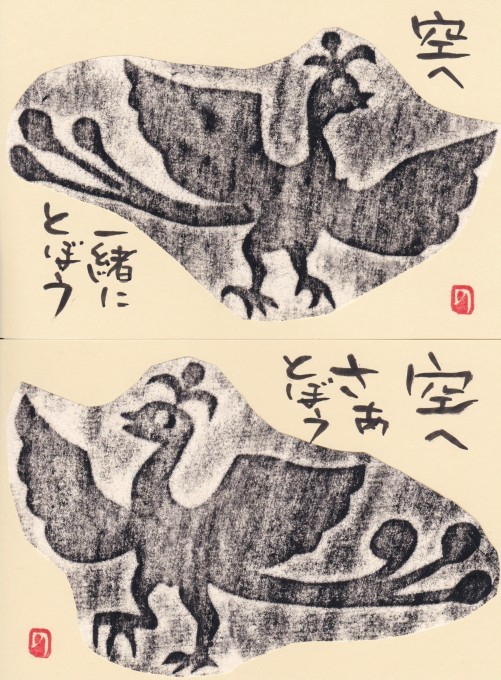 空へ
一緒に
とぼう
空へ
さあ
とぼう
の
の